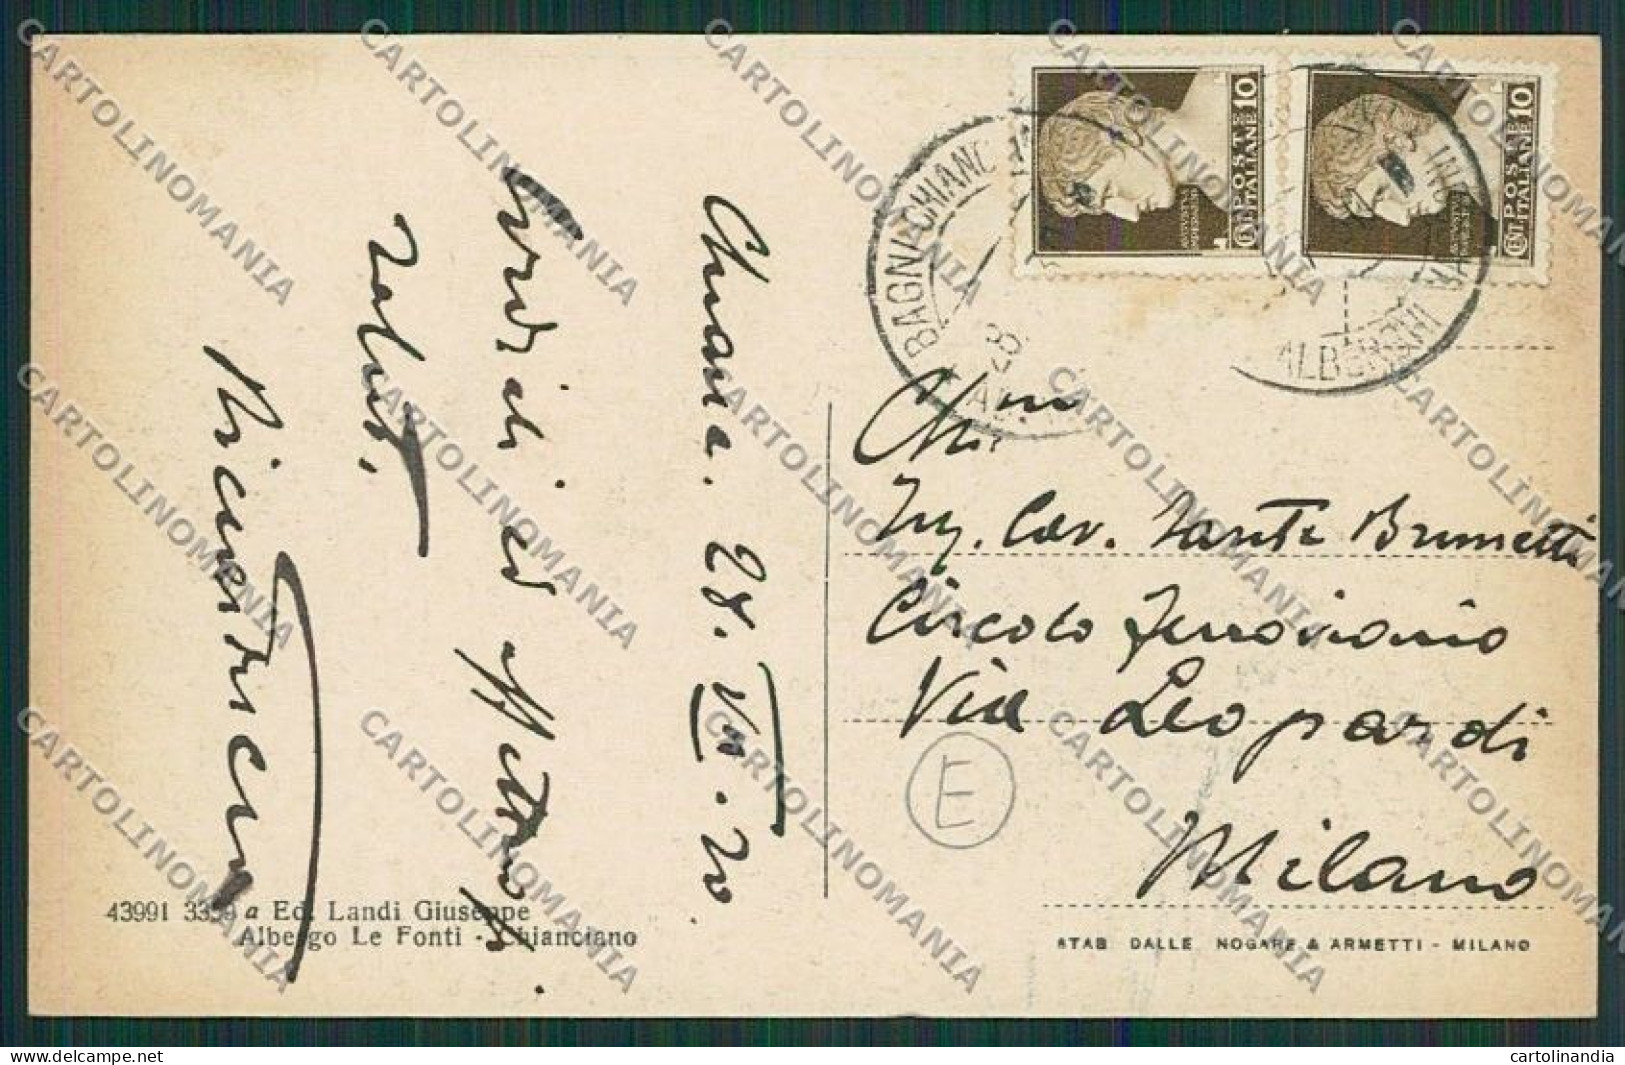 Chianc. 28. VII. 30
Cordiali ed affettuosi
saluti,
10 CENT. POSTE ITALIANE
10 CENT. POSTE ITALIANE
BAGNI CHIANC
28
ALBERGHI
Ing. Cav. Sante Brunetti
Circolo Ferroviario
Via Leopardi
Milano
E
43991 3359 a Ed. Landi Giuseppe
Albergo Le Fonti - Chianciano
STAB DALLE NOGARE & ARMETTI - MILANO
CARTOLINOMANIA
cartolinandia